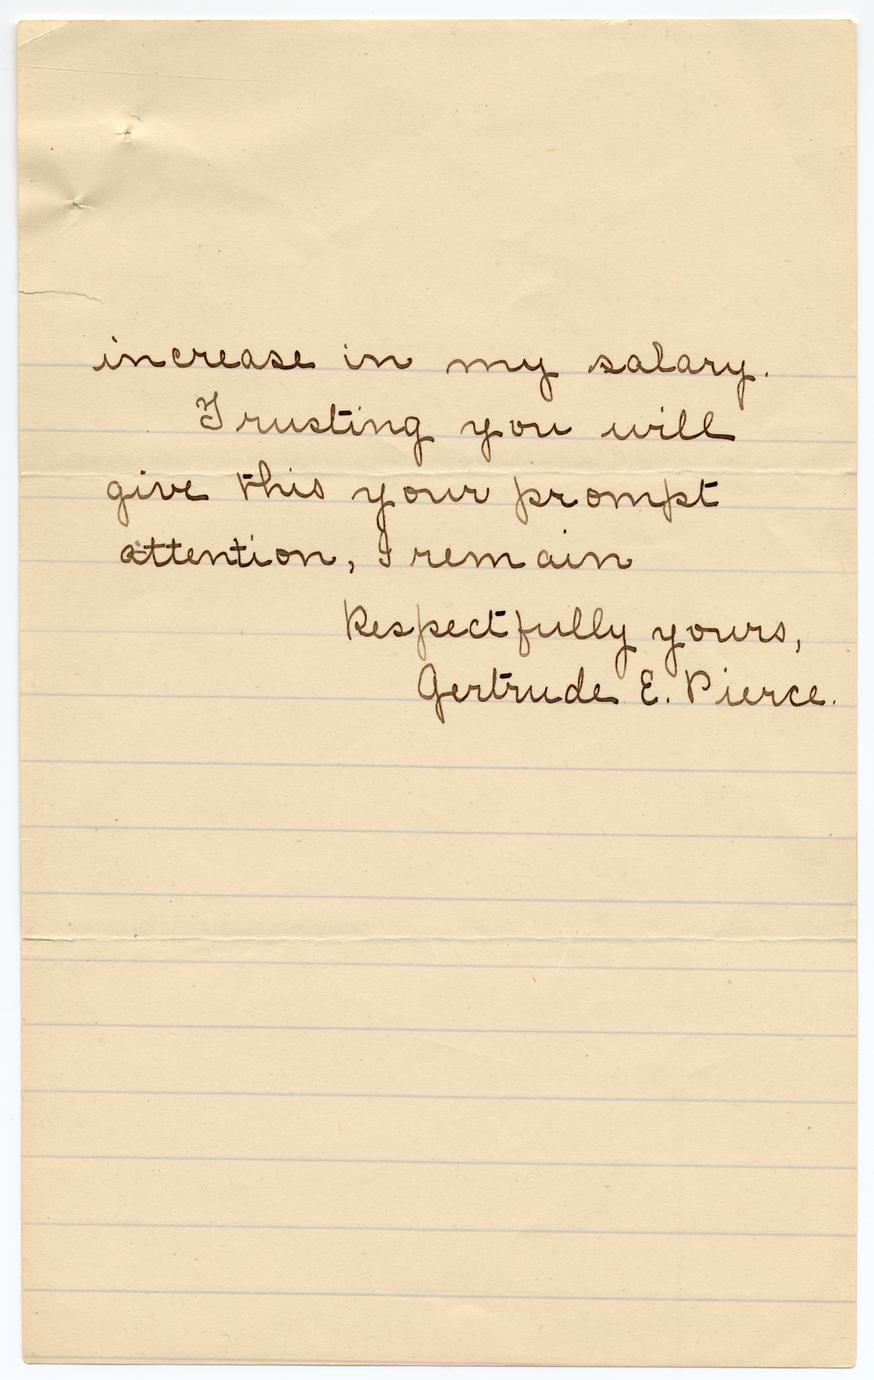 increase in my salary.
Trusting you will
give this your prompt
attention, I remain
Respectfully yours,
Gertrude E. Pierce.